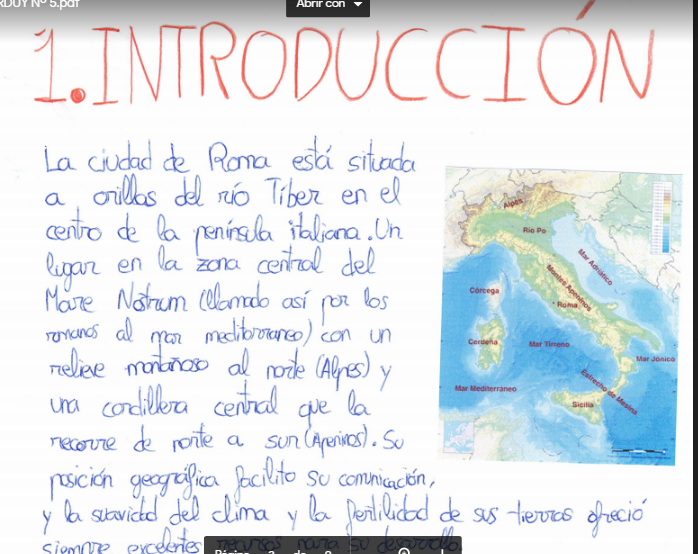 RDUY Nº 5.pdf
Abrir con
1. INTRODUCCIÓN
La ciudad de Roma está situada
a orillas del río Tíber en el
centro de la península italiana. Un
lugar en la zona central del
Mare Nostrum (llamado así por los
romanos al mar mediterraneo) con un
relieve montañoso al norte (Alpes) y
una cordillera central que la
recorre de norte a sur (Apeninos). Su
posición geográfica facilito su comunicación,
y la suavidad del clima y la fertilidad de sus tierras ofreció
siempre excelentes recursos para su desarrollo.
Alpes
Río Po
Mar Adriático
Montes Apeninos
Córcega
Roma
Cerdeña
Mar Tirreno
Mar Jónico
Mar Mediterraneo
Estrecho de Mesina
Sicilia
Página 3 de 9